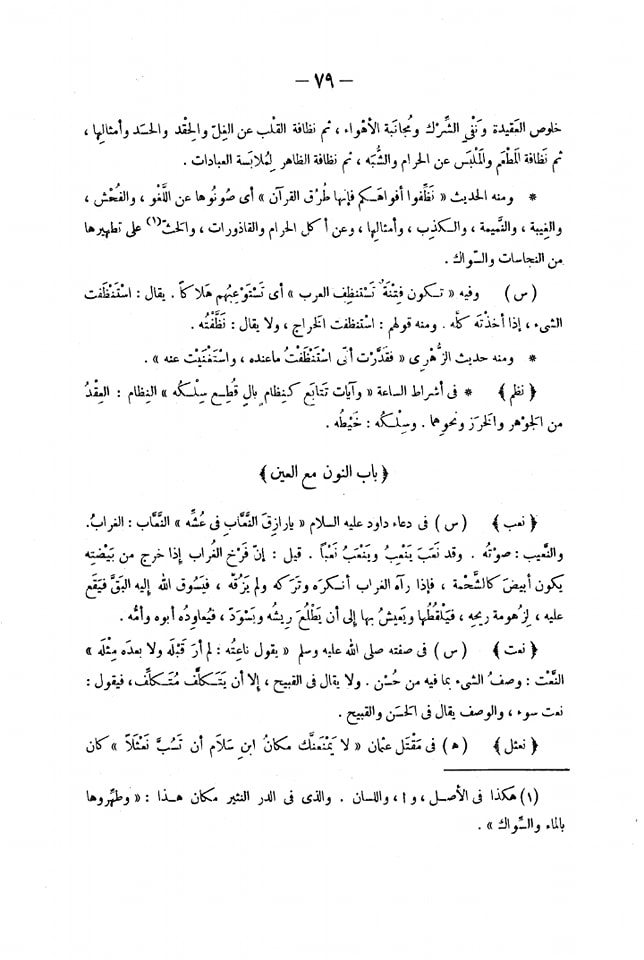 — ٧٩ —
خلوص العَقيدة ونَفْى الشِّرك ومُجانَبة الأهواء ، ثم نظافة القلب عن الغِلّ والحِقْد والحسَد وأمثالِها ،
ثم نَظافة المَطْعَم والمَلْبَس عن الحرام والشُّبَه ، ثم نظافة الظاهر لِمُلابَسة العبادات .
* ومنه الحديث « نَظِّفوا أفواهَكم فإنها طُرُق القرآن » أى صُونُوها عن اللَّغْو ، والفُحْش ،
والغِيبة ، والنَّميمة ، والكذِب ، وأمثالِها ، وعن أكل الحرام والقاذورات ، والحَثّ(١) على تطهيرها
من النجاسات والسِّواك .
(س) وفيه « تكون فِتْنَةٌ تَسْتَنظِف العرب » أى تَسْتَوْعِبُهم هَلاكاً . يقال : اسْتَنْظَفت
الشىء ، إذا أخذْتَه كلَّه . ومنه قولهم : اسْتنظفت الخراج ، ولا يقال : نَظَّفْتُه .
* ومنه حديث الزُّهْرى « فقَدَّرت أنّى اسْتَنْظَفْتُ ماعنده ، واسْتَغْنَيْت عنه » .
﴿ نظم ﴾ * فى أشراط الساعة « وآيات تَتَابَع كنِظام بالٍ قُطِع سِلْكُه » النِظام : العِقْدُ
من الجَوْهر والخَرَز ونحوهما . وسِلْكُه : خَيْطُه .
﴿ باب النون مع العين ﴾
﴿ نعب ﴾ (س) فى دعاء داود عليه السلام « يارازِقَ النَّعَّابِ فى عُشِّه » النَّعَّاب : الغرابُ.
والنَّعيب : صوْتُه . وقد نَعَبَ يَنْعِبُ ويَنْعَبُ نَعْباً . قيل : إنّ فَرْخ الغُراب إذا خرج من بَيْضتِه
يكون أبيضَ كالشَّحْمة ، فإذا رآه الغراب أنكرَه وتَرَكه ولم يَزُقّه ، فيَسُوق الله إليه البَقَّ فيَقَع
عليه ، لِزُهومة ريحِه ، فيَلْقُطُها ويَعيشُ بها إلى أن يَطْلُعَ ريشُه ويَسْوَدّ ، فيُعاوِدُه أبوه وأمُّه .
﴿ نعت ﴾ (س) فى صفته صلى الله عليه وسلم « يقول ناعِتُه : لم أرَ قَبْلَه ولا بعدَه مِثْلَه »
النَّعْت : وصفُ الشىء بما فيه من حُسْن . ولا يقال فى القبيح ، إلا أن يَتَكلَّف مُتَكلِّف، فيقول :
نعت سوء ، والوصف يقال فى الحَسَن والقبيح .
﴿ نعثل ﴾ (ه) فى مَقْتَل عثمان « لا يَمْنَعنَّك مكانُ ابنِ سَلَام أن تَسُبَّ نَعْثَلاً » كان
(١) هكذا فى الأصل ، و ا ، واللسان . والذى فى الدر النثير مكان هذا : « وطهِّروها
بالماء والسِّواك » .